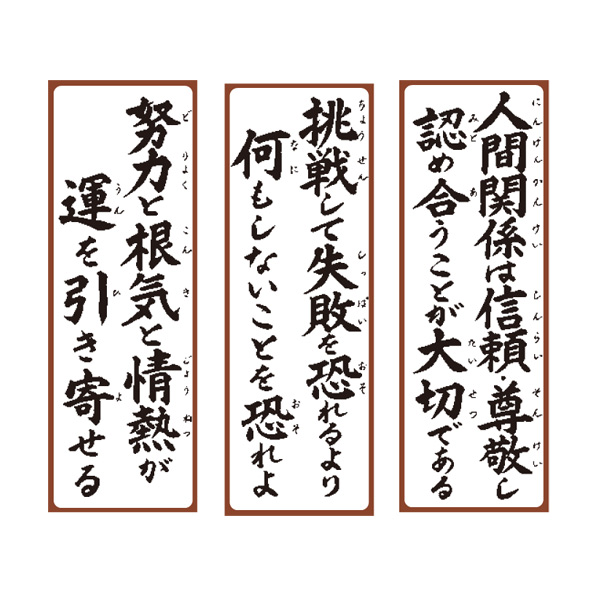 人間関係は信頼、尊敬し
認め合うことが大切である
挑戦して失敗を恐れるより
何もしないことを恐れよ
努力と根気と情熱が
運を引き寄せる